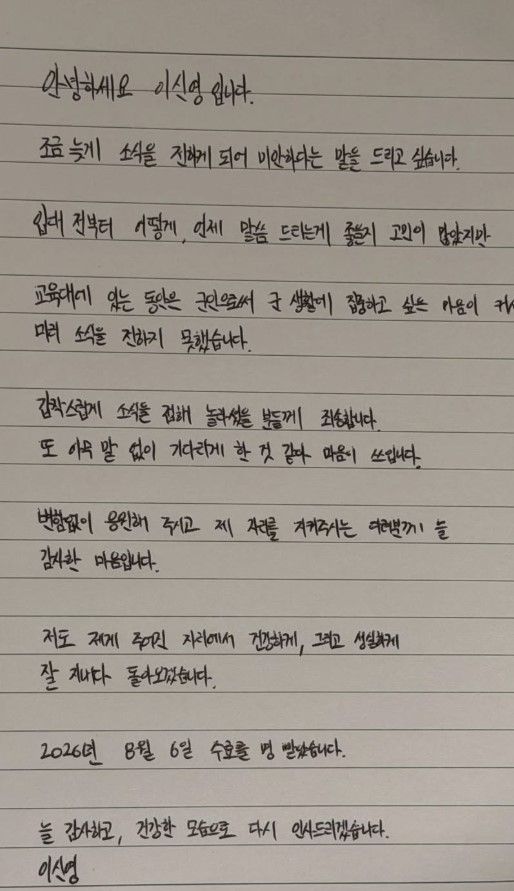 안녕하세요 이신영입니다.
조금 늦게 소식을 전하게 되어 미안하다는 말을 드리고 싶습니다.
입대 전부터 어떻게, 언제 말씀 드리는게 좋을지 고민이 많았지만
교육대에 있는 동안은 군인으로써 군 생활에 집중하고 싶은 마음이
미리 소식을 전하지 못했습니다.
갑작스럽게 소식을 접해 놀라셨을 분들께 죄송합니다.
또 아무 말 없이 기다리게 한 것 같다 마음이 쓰입니다.
변함없이 응원해 주시고 제 자리를 지켜주시는 여러분께 늘
감사한 마음입니다.
저도 제게 주어진 자리에서 건강하게, 그리고 성실하게
잘 지내다 돌아오겠습니다.
2026년 8월 6일 수료를 명 받았습니다.
늘 감사하고, 건강한 모습으로 다시 인사드리겠습니다.
이신영